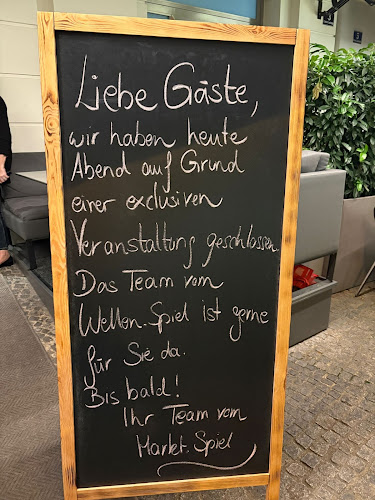 Liebe Gäste,
wir haben heute
Abend auf Grund
einer exclusiven
Veranstaltung geschlossen.
Das Team vom
Wellen.Spiel ist gerne
für Sie da.
Bis bald!
Ihr Team vom
Markt.Spiel